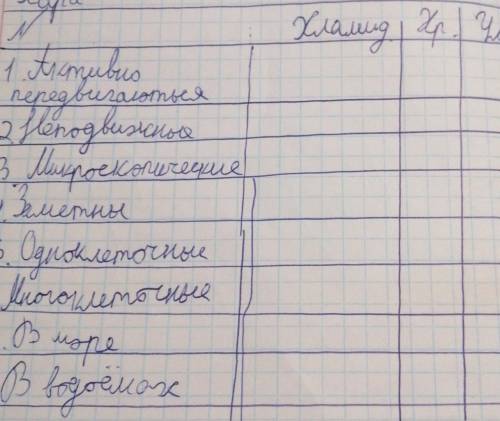 N Хламид Хр. Ул
1. Активно
передвигаються
2 Неподвижные
3. Микроскопические
. Заметны
. Одноклеточные
Многоклеточные
. В море
В водоёмах